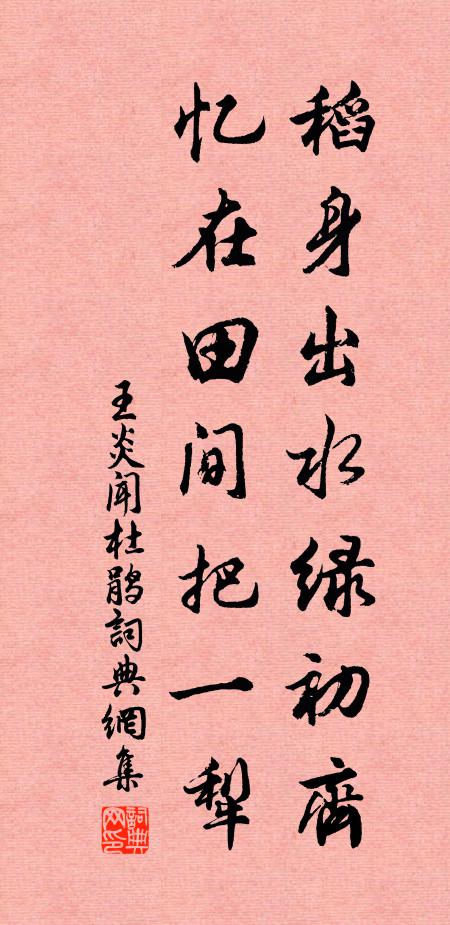 稻身出水绿初齊
忆在田间把一犁
王炎闻杜鹃詞典網集
詞典網印